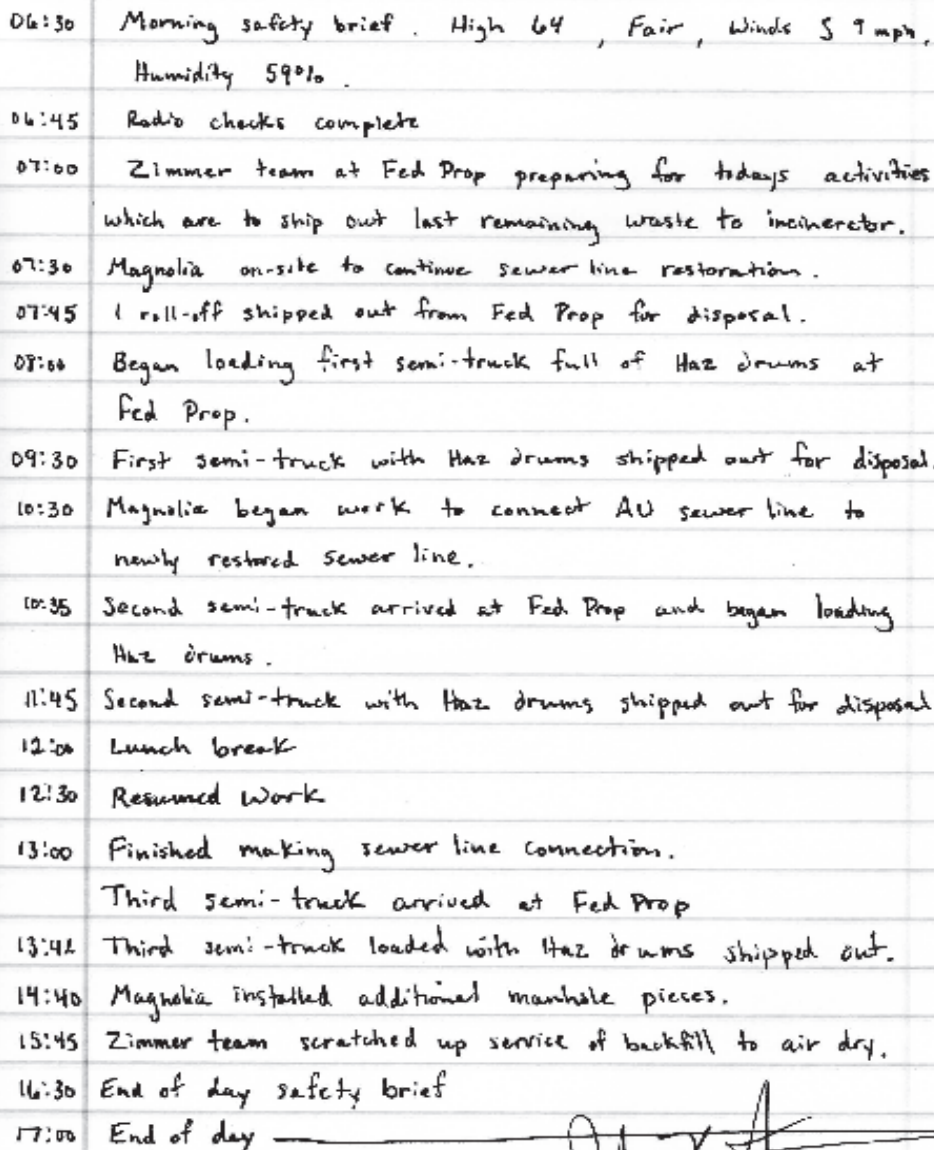 06:30 Morning safety brief. High 64, Fair, Winds S 9 mph,
Humidity 59%.
06:45 Radio checks complete
07:00 Zimmer team at Fed Prop preparing for todays activities
which are to ship out last remaining waste to incinerator.
07:30 Magnolia on-site to continue sewer line restoration.
07:45 1 roll-off shipped out from Fed Prop for disposal.
08:00 Began loading first semi-truck full of Haz drums at
Fed Prop.
09:30 First semi-truck with Haz drums shipped out for disposal.
10:30 Magnolia began work to connect AU sewer line to
newly restored sewer line.
10:35 Second semi-truck arrived at Fed Prop and began loading
Haz drums.
11:45 Second semi-truck with Haz drums shipped out for disposal
12:00 Lunch break
12:30 Resumed Work
13:00 Finished making sewer line connection.
Third semi-truck arrived at Fed Prop
13:42 Third semi-truck loaded with Haz drums shipped out.
14:40 Magnolia installed additional manhole pieces.
15:45 Zimmer team scratched up service of backfill to air dry.
16:30 End of day safety brief
17:00 End of day